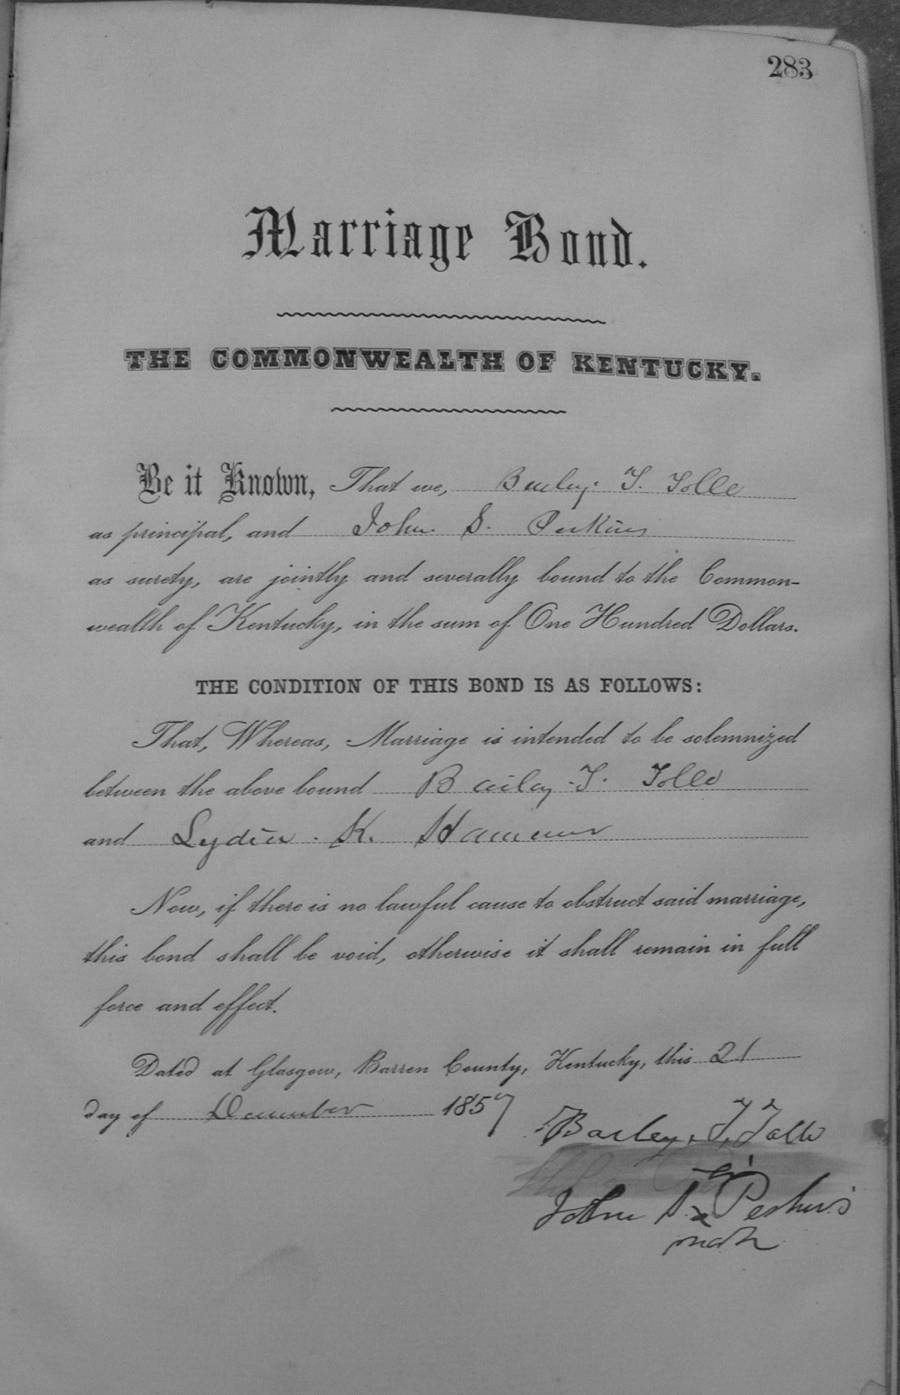 283
Marriage Bond.
THE COMMONWEALTH OF KENTUCKY.
Be it Known, That we, Bailey. T. Tolle
as principal, and John. S. Perkins
as surety, are jointly and severally bound to the Common-
wealth of Kentucky, in the sum of One Hundred Dollars.
THE CONDITION OF THIS BOND IS AS FOLLOWS:
That, Whereas, Marriage is intended to be solemnized
between the above bound Bailey. T. Tolle
and Lydia. K. Hammer
Now, if there is no lawful cause to obstruct said marriage,
this bond shall be void, otherwise it shall remain in full
force and effect.
Dated at Glasgow, Barren County, Kentucky, this 21
day of December 1857
Bailey. T. Tolle
his
John S. x Perkins
mark